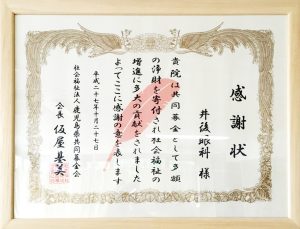 感謝状
井後眼科 様
貴院は共同募金として多額
の浄財を寄付され社会福祉の
増進に多大の貢献をされました
よってここに感謝の意を表します
平成二十七年十月二十七日
社会福祉法人鹿児島県共同募金会
会長